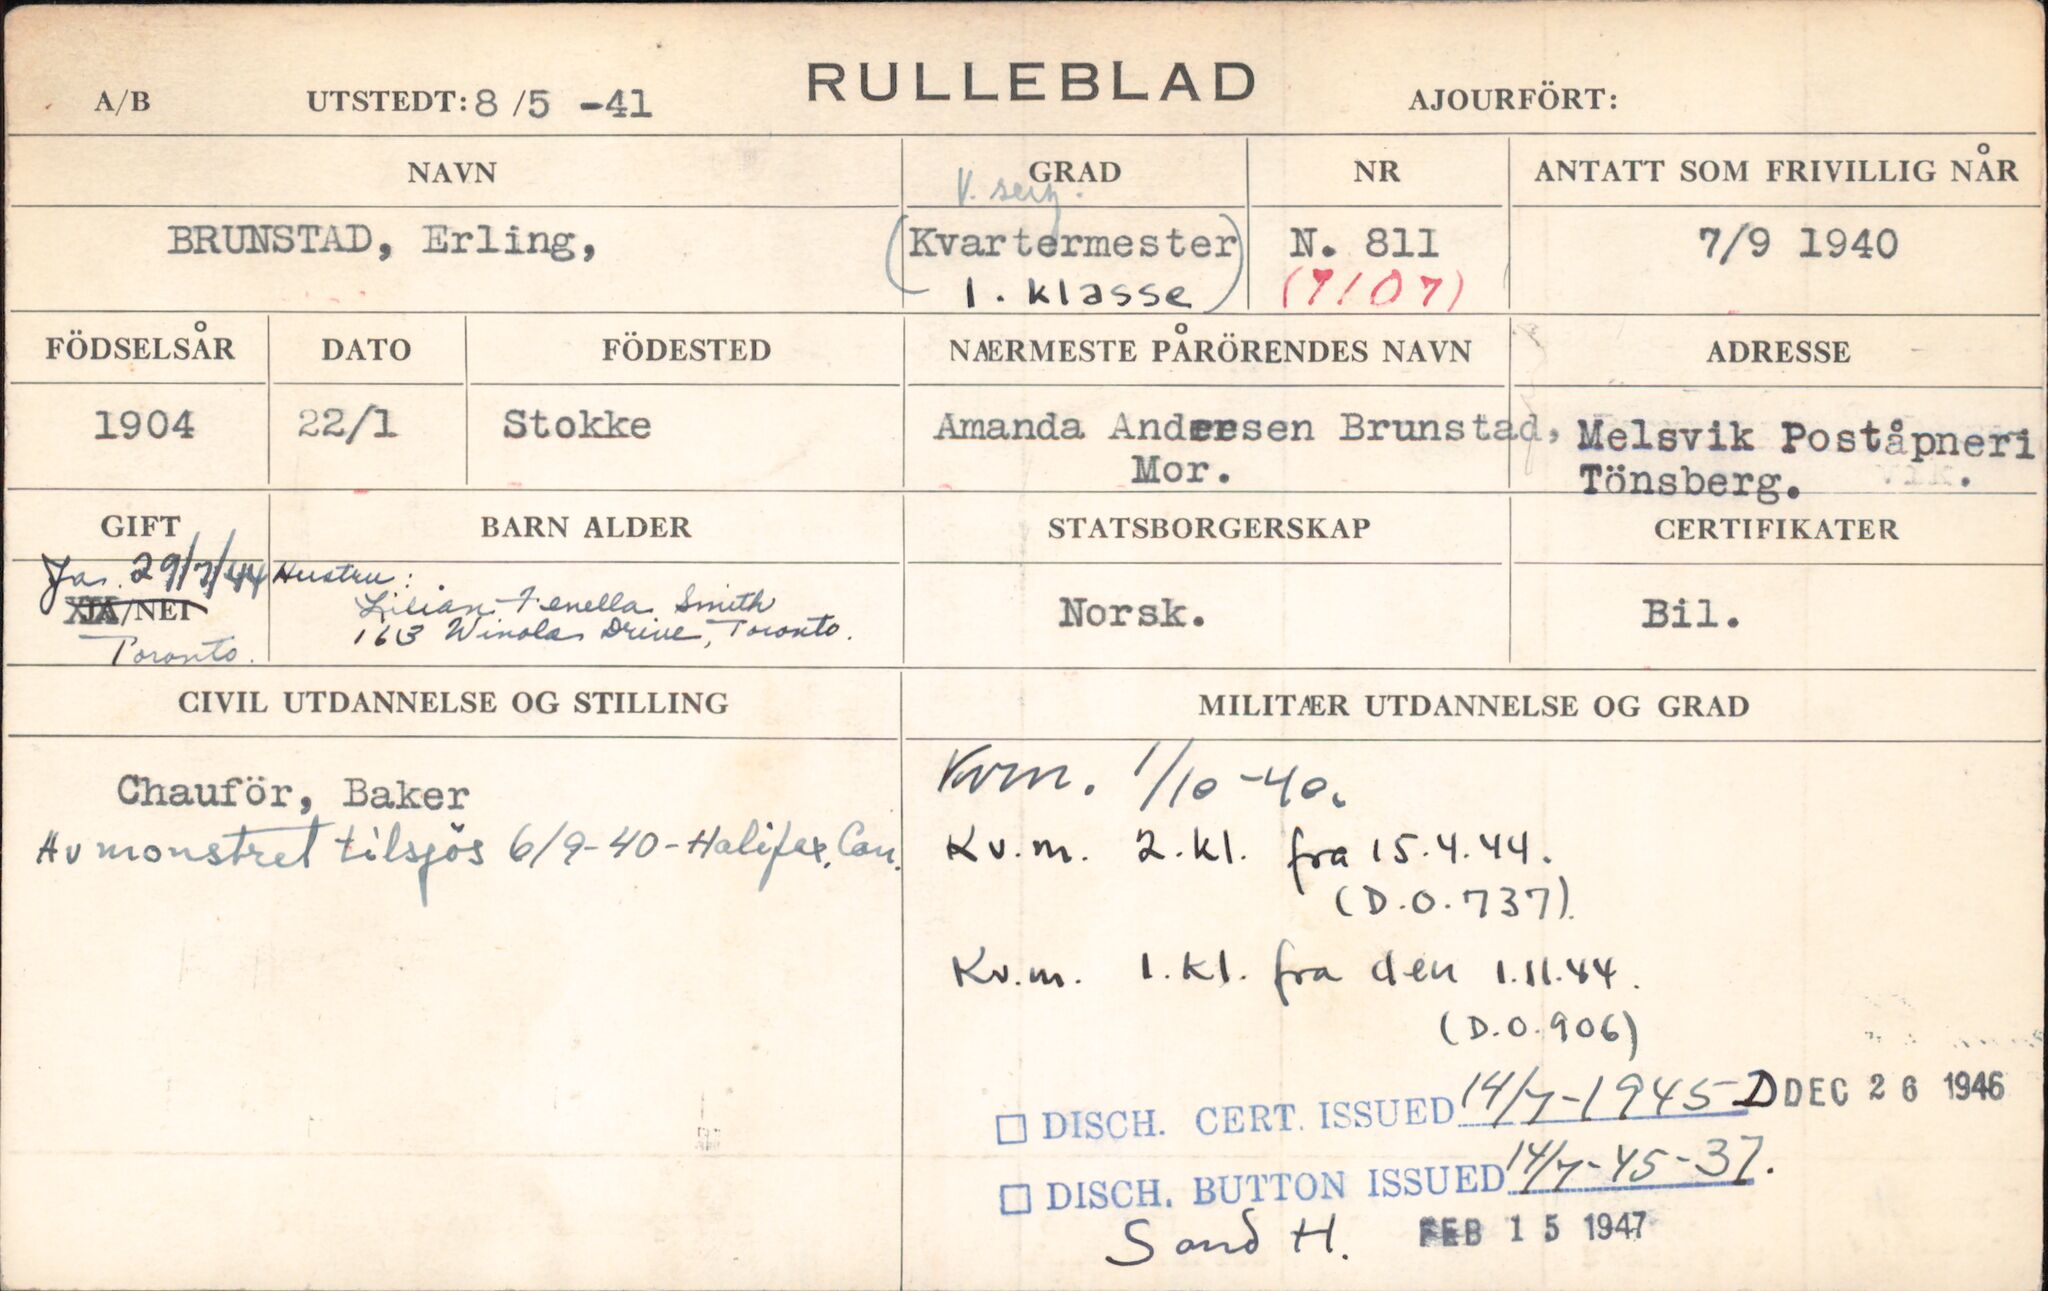 RULLEBLAD
A/B UTSTEDT: 8/5 -41 AJOURFÖRT:
NAVN GRAD NR ANTATT SOM FRIVILLIG NÅR
V. serg.
BRUNSTAD, Erling, (Kvartermester N. 811 7/9 1940
1. klasse) (7107)
FÖDSELSÅR DATO FÖDESTED NÆRMESTE PÅRÖRENDES NAVN ADRESSE
1904 22/1 Stokke Amanda Andersen Brunstad, Melsvik Poståpneri
Mor. Tönsberg.
GIFT BARN ALDER STATSBORGERSKAP CERTIFIKATER
Ja. 29/7/44 Hustru:
JA/NEI Lilian Fenella Smith Norsk. Bil.
Toronto. Winola Drive, Toronto.
CIVIL UTDANNELSE OG STILLING MILITÆR UTDANNELSE OG GRAD
Chauför, Baker
Avmönstret tilsjös 6/9-40-Halifax, Can.
Kvm. 1/10-40.
Kv.m. 2.kl. fra 15.4.44.
(D.O.737).
Kv.m. 1.kl. fra den 1.11.44.
(D.O.906)
DISCH. CERT. ISSUED 14/7-1945 D DEC 26 1946
DISCH. BUTTON ISSUED 14/7-45-37.
Sand H. FEB 15 1947